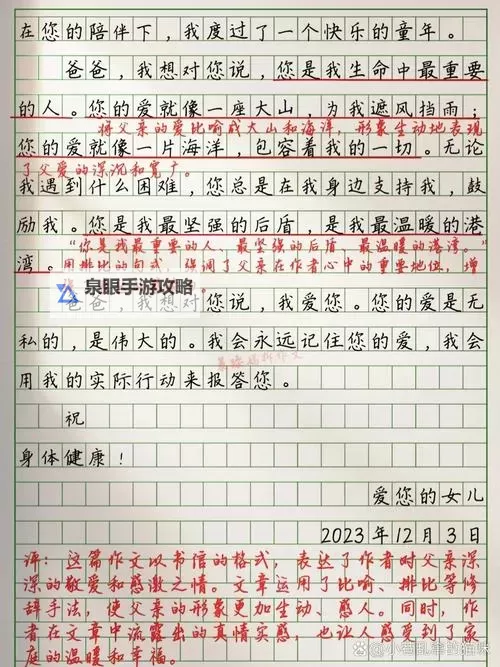 在您的陪伴下，我度过了一个快乐的童年。
爸爸，我想对您说，您是我生命中最重要
的人。您的爱就像一座大山，为我遮风挡雨；
将父亲的爱比喻成大山和海洋，形象生动地表现
您的爱就像一片海洋，包容着我的一切。无论
了父爱的深沉和宽广。
我遇到什么困难，您总是在我身边支持我，鼓
励我。您是我最坚强的后盾，是我最温暖的港
"你是我最重要的人、最坚强的后盾、最温暖的港湾。"
湾。用排比的句式，强调了父亲在作者心中的重要地位，增
泉眼手游攻略
爸爸，我想对您说，我爱您。您的爱是无
私的，是伟大的。我会永远记住您的爱，我会
用我的实际行动来报答您。
祝
身体健康！
爱您的女儿
2023年12月3日
评：这篇作文以书信的格式，表达了作者对父亲深
深的敬爱和感激之情。文章运用了比喻、排比等修
辞手法，使父亲的形象更加生动、感人。同时，作
者在文章中流露出的真情实感，也让人感受到了家
庭的温暖和幸福。